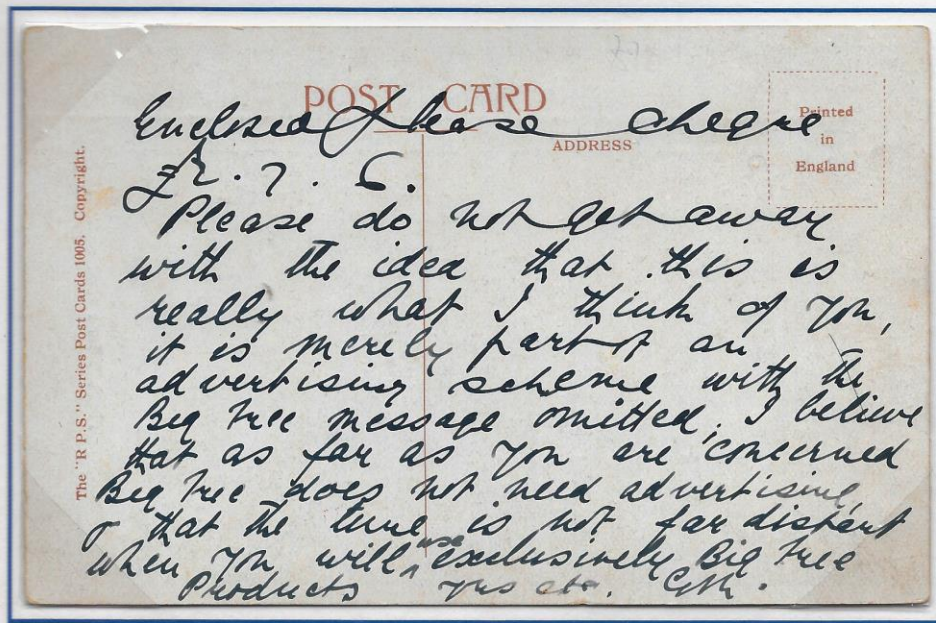 POST CARD
ADDRESS
Printed
in
England
The "R.P.S." Series Post Cards 1005. Copyright.
Enclosed please cheque
£2. 7. 6.
Please do not get away
with the idea that this is
really what I think of you,
it is merely part of an
advertising scheme with the
Big Tree message omitted, I believe
that as far as you are concerned
Big Tree does not need advertising,
& that the time is not far distant
when you will use exclusively Big Tree
Products yrs etc.